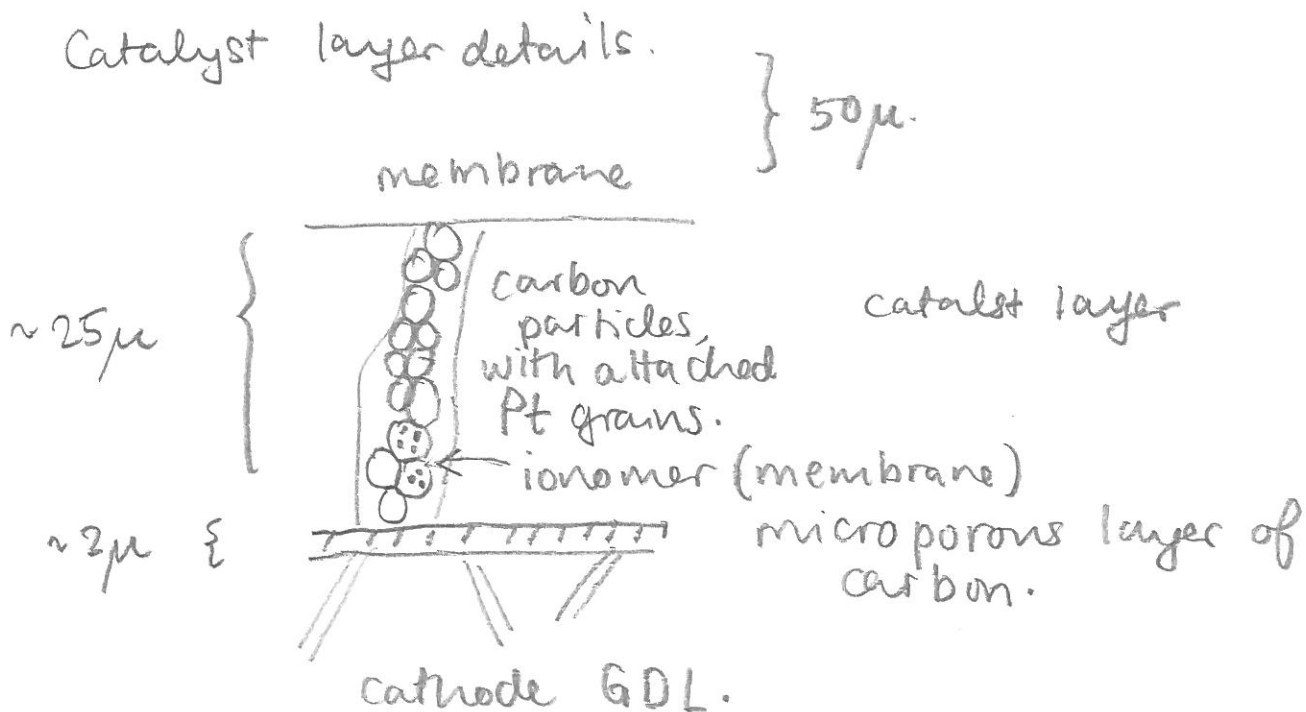 Catalyst layer details.
50μ.
membrane
~25μ
carbon
particles,
with attached
Pt grains.
catalst layer
ionomer (membrane)
~2μ
microporous layer of
carbon.
cathode GDL.